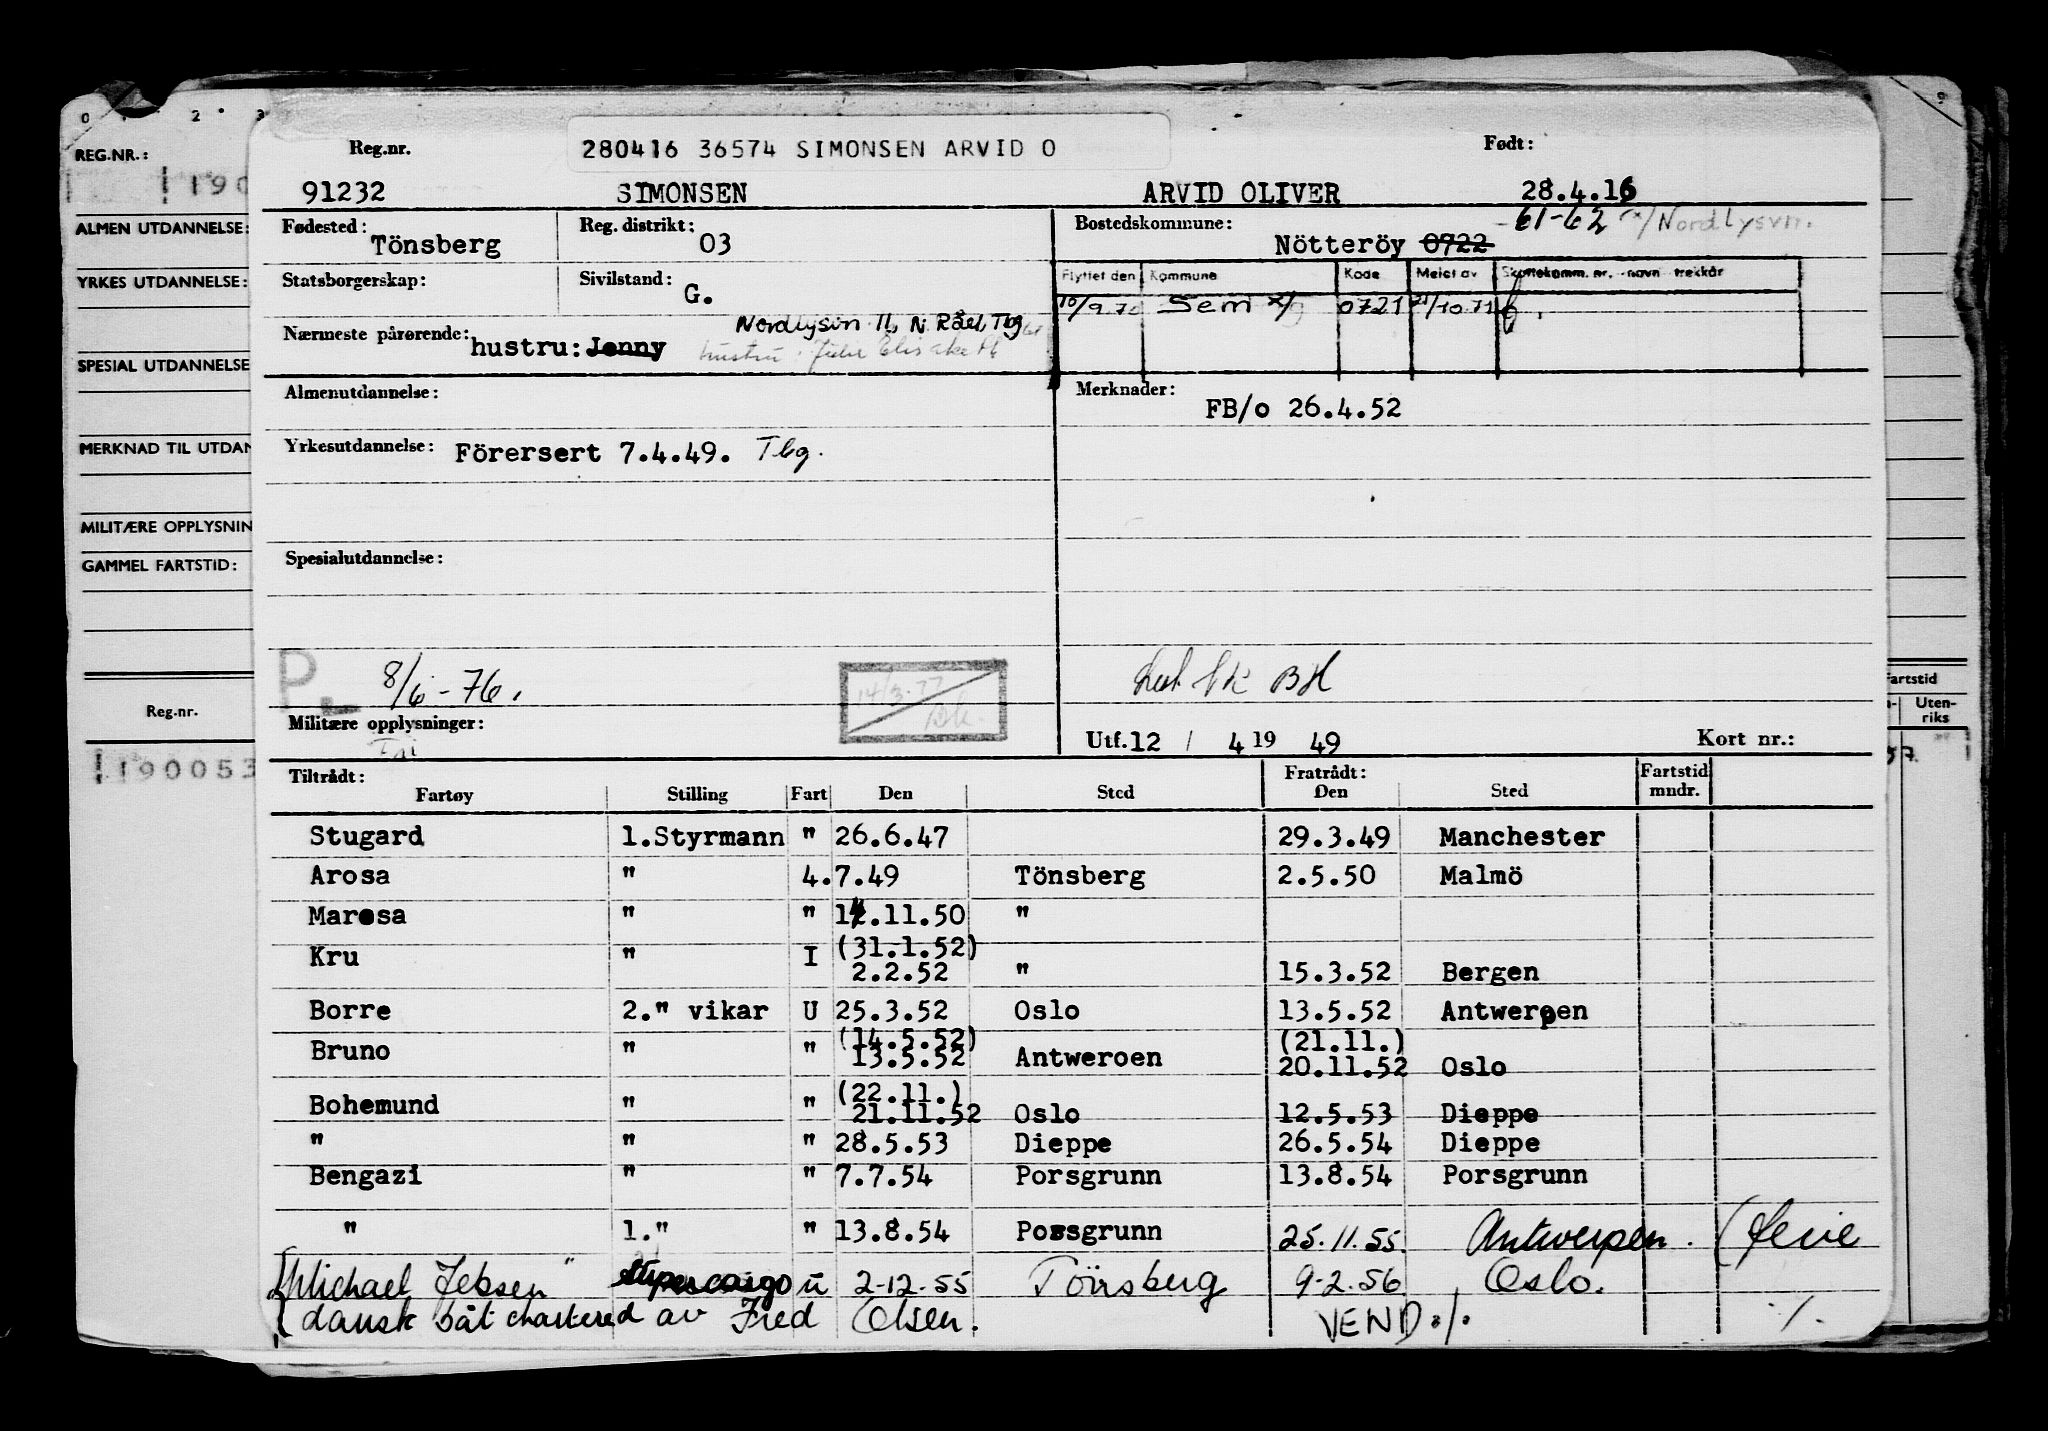 0 2 3 9
REG.NR.:
190
ALMEN UTDANNELSE:
YRKES UTDANNELSE:
SPESIAL UTDANNELSE
MERKNAD TIL UTDAN
MILITÆRE OPPLYSNIN
GAMMEL FARTSTID:
Reg.nr.
190053
artstid
Uten-
riks
Reg.nr. 280416 36574 SIMONSEN ARVID O Født:
91232 SIMONSEN ARVID OLIVER 28.4.16
Fødested: Tönsberg Reg. distrikt: 03 Bostedskommune: Nötteröy 0722 61-62 x/Nordlysvn.
Statsborgerskap: Sivilstand: G.
Flyttet den Kommune Kode Meldt av Skattekomm. nr. - navn - trekkår
10/9.70 Sem x/ 0721 21/10.71
Nordlysvn 11, N Råel Tbg
Nærmeste pårørende: hustru: Jenny hustru: Julie Elisabeth
Almenutdannelse: Merknader: FB/o 26.4.52
Yrkesutdannelse: Förersert 7.4.49. Tbg.
Spesialutdannelse:
P. 8/6-76. 14/3-77 BH
Militære opplysninger: Utf. 12 / 4 19 49 Kort nr.:
Tiltrådt: Fratrådt: Fartstid
Fartøy Stilling Fart Den Sted Den Sted mndr.
Stugard 1.Styrmann " 26.6.47 29.3.49 Manchester
Arosa " 4.7.49 Tönsberg 2.5.50 Malmö
Marosa " " 14.11.50 "
Kru " I (31.1.52) 2.2.52 " 15.3.52 Bergen
Borre 2." vikar U 25.3.52 Oslo 13.5.52 Antwerpen
Bruno " " (14.5.52) 13.5.52 Antweroen (21.11.) 20.11.52 Oslo
Bohemund " " (22.11.) 21.11.52 Oslo 12.5.53 Dieppe
" " " 28.5.53 Dieppe 26.5.54 Dieppe
Bengazi " " 7.7.54 Porsgrunn 13.8.54 Porsgrunn
" 1." " 13.8.54 Porsgrunn 25.11.55. Antwerpen. (ferie
Michael Jebsen" supercargo u 2-12.55 Tönsberg 9-2.56 Oslo.
dansk båt chartered av Fred Olsen. VEND ./. ./.